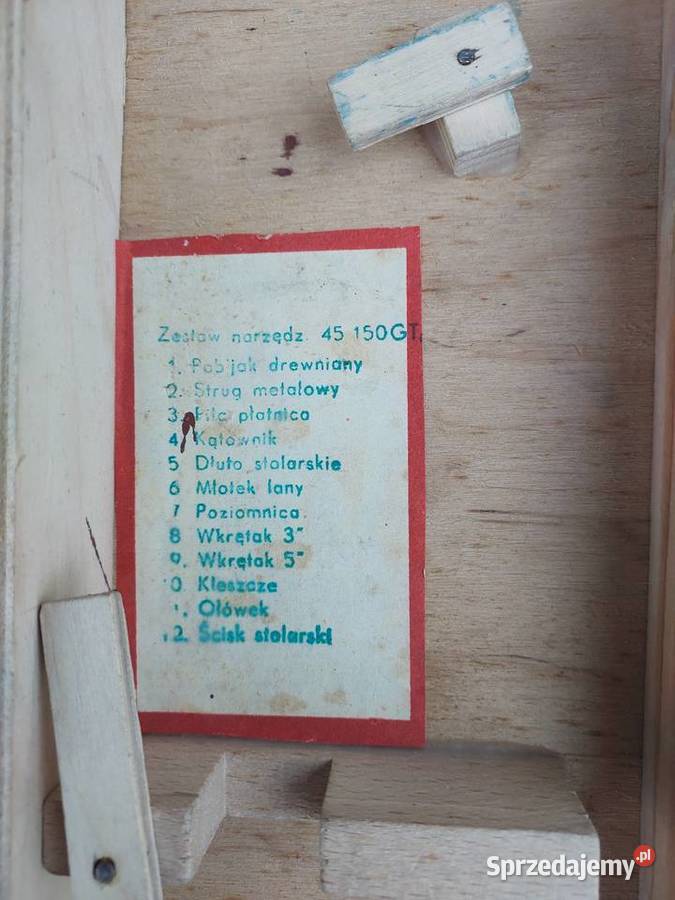 Zestaw narzędz. 45 150GT.
1. Pobijak drewniany
2. Strug metalowy
3. Piła płatnica
4. Kątownik
5 Dłuto stolarskie
6 Młotek lany
7 Poziomnica
8 Wkrętak 3"
9. Wkrętak 5"
10. Kleszcze
11. Ołówek
12. Ścisk stolarski
Sprzedajemy.pl